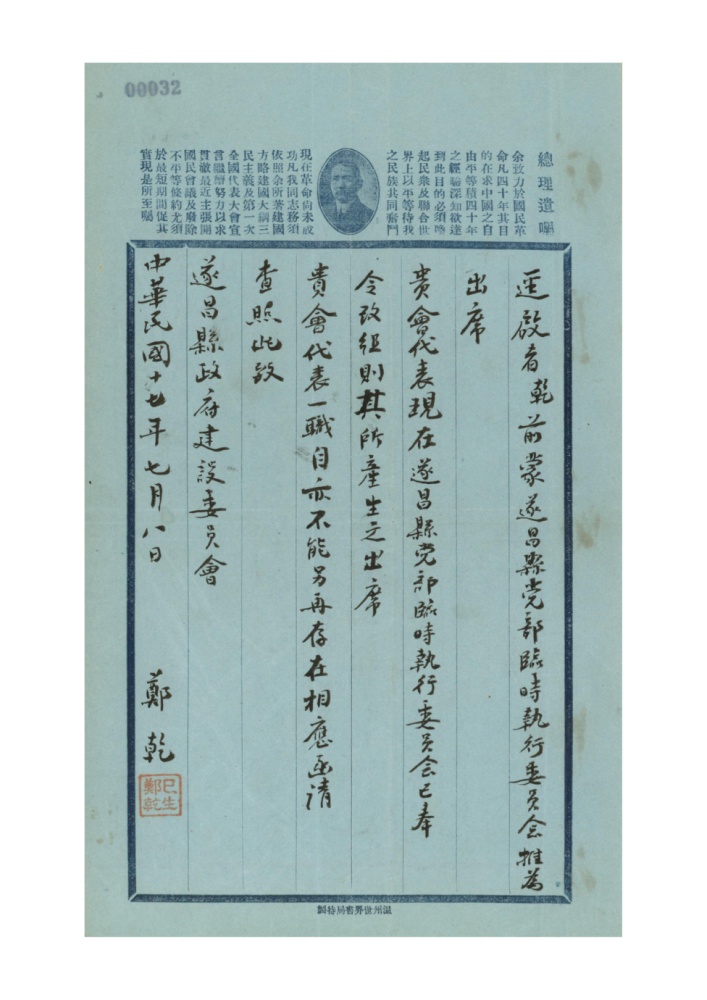 00032
總理遺囑
余致力於國民革
命凡四十年其目
的在求中國之自
由平等積四十年
之經驗深知欲達
到此目的必須喚
起民眾及聯合世
界上以平等待我
之民族共同奮鬥
現在革命尚未成
功凡我同志務須
依照余所著建國
方略建國大綱三
民主義及第一次
全國代表大會宣
言繼續努力以求
貫澈最近主張開
國民會議及廢除
不平等條約尤須
於最短期間促其
實現是所至囑
逕啟者乾前蒙遂昌縣党部臨時執行委員会推為
出席
貴會代表現在遂昌縣党部臨時執行委員会已奉
令改組則其所產生之出席
貴會代表一職自亦不能另再存在相應函請
查照此致
遂昌縣政府建設委員會
中華民國十七年七月八日 鄭乾
巳生
鄭乾
溫州世界書局特製